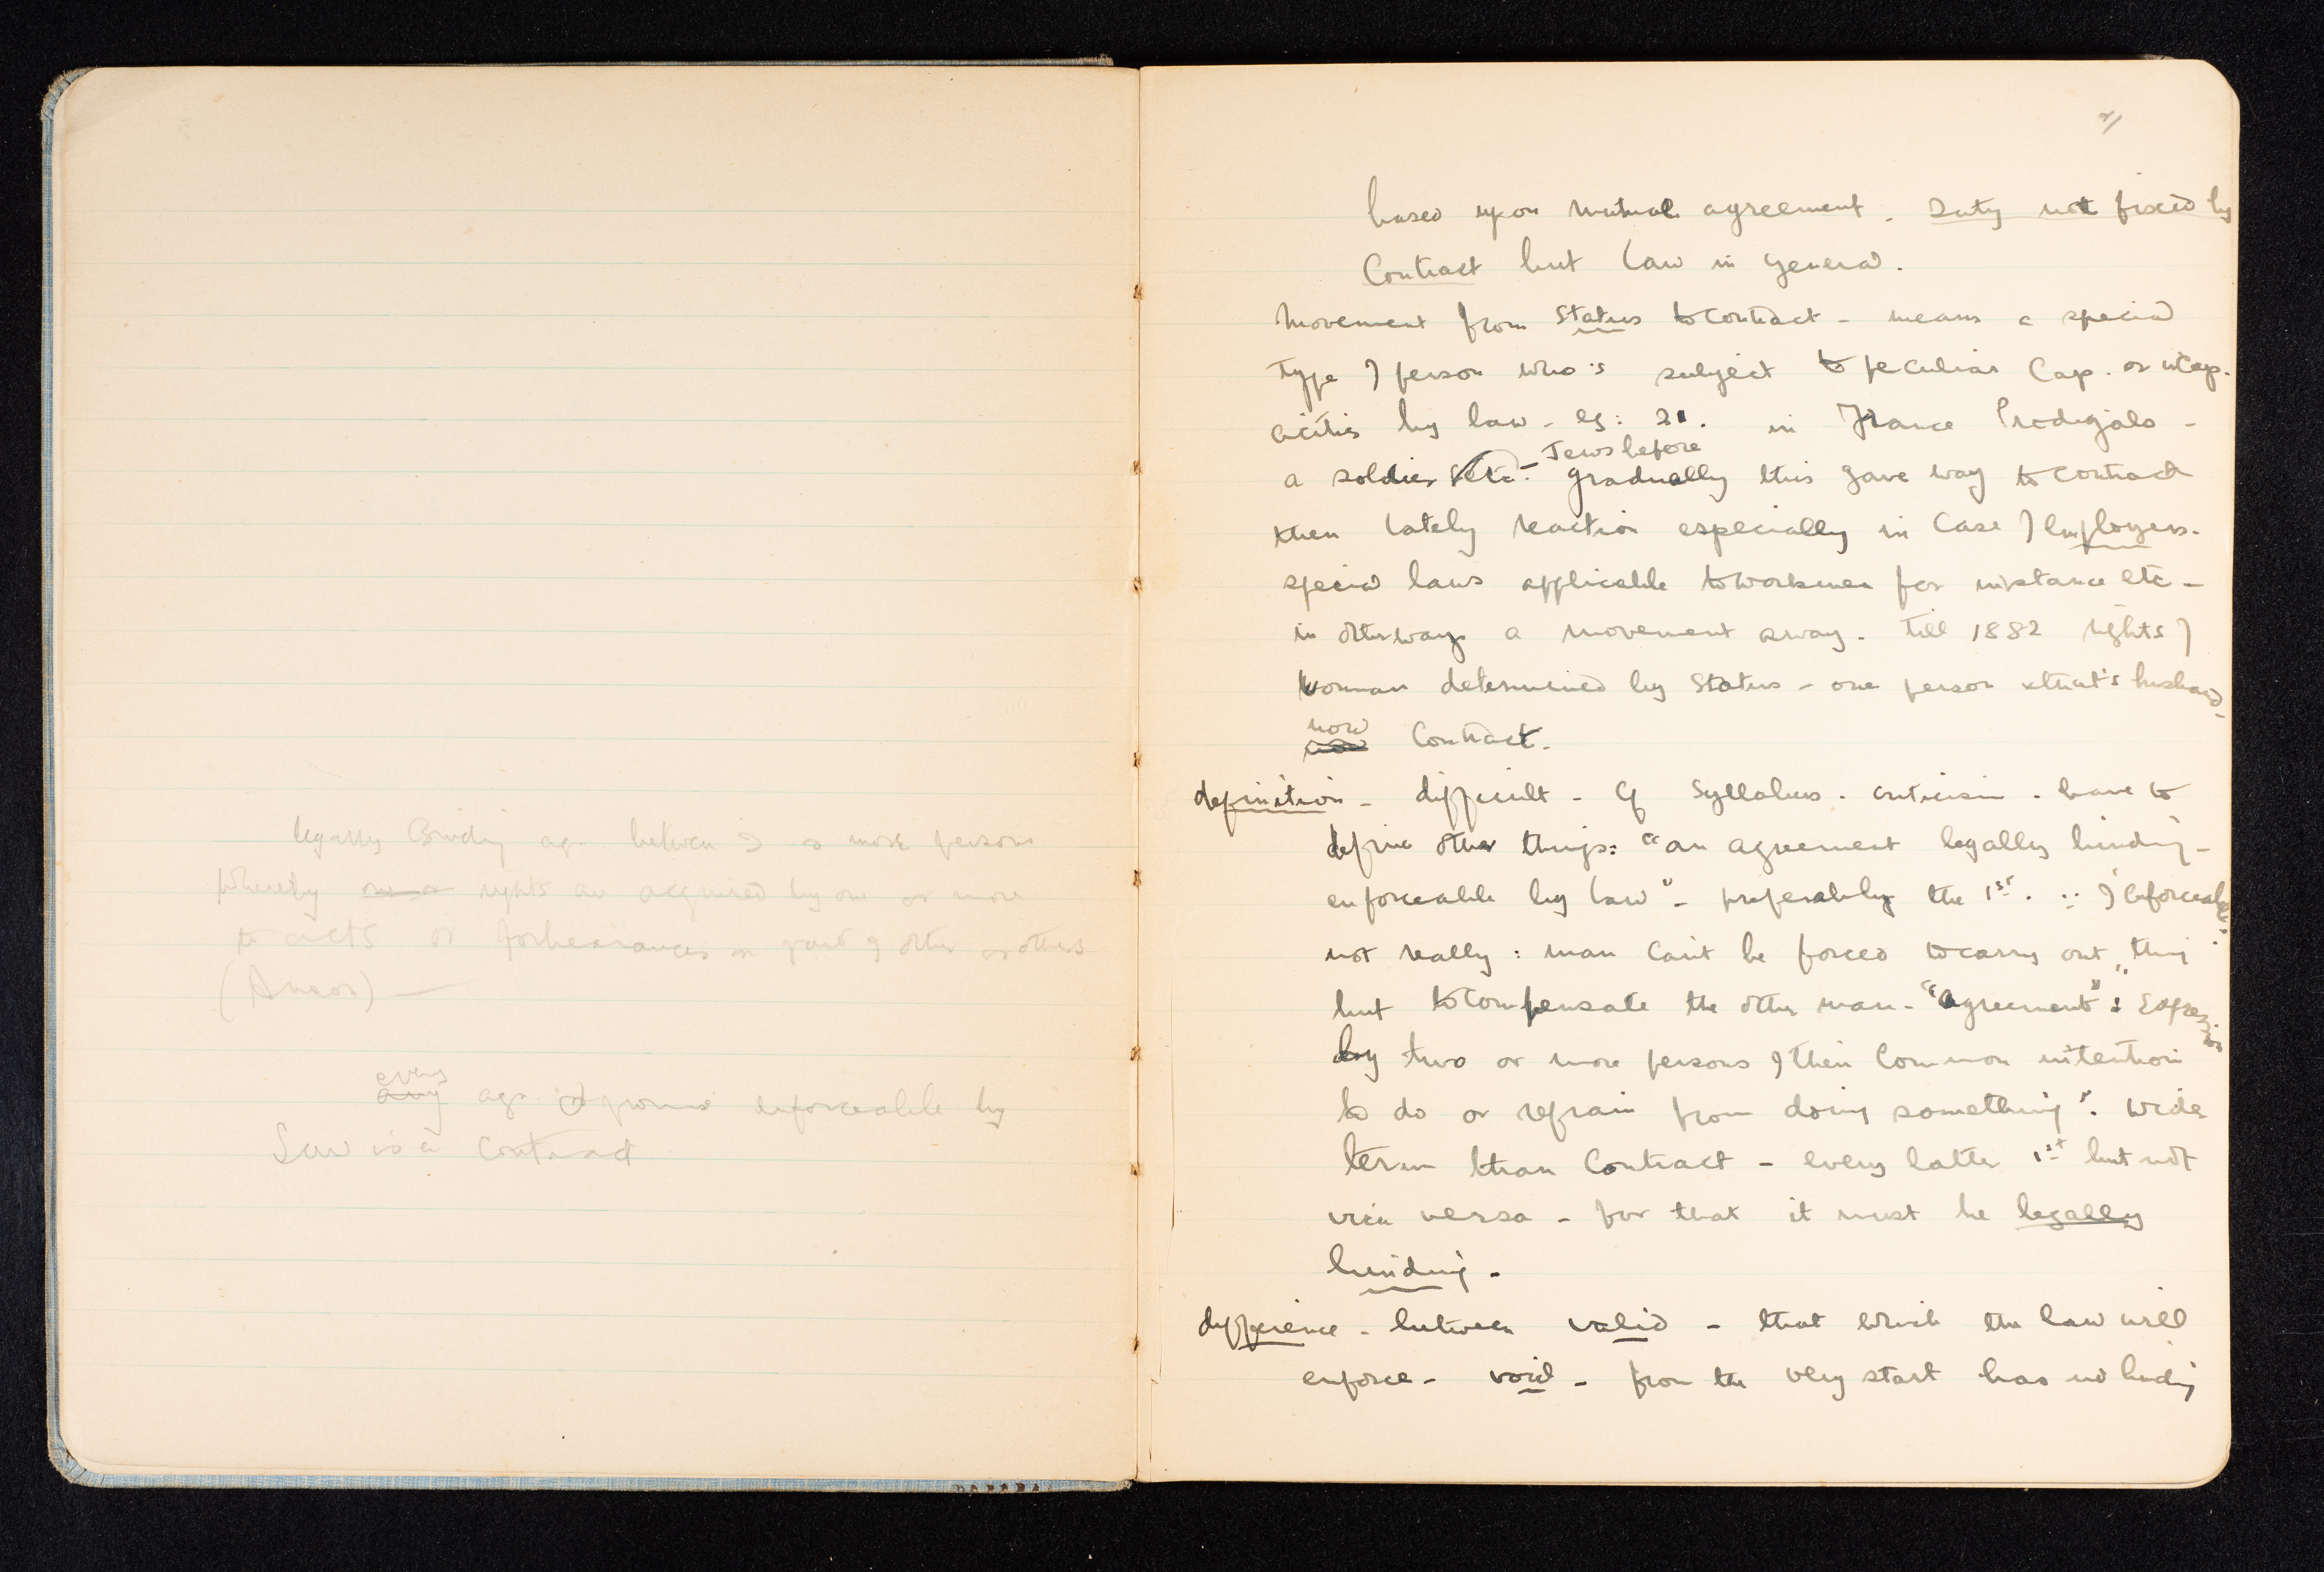 legally Binding ag. between 2 or more persons
whereby one or rights are acquired by one or more
to acts or forbearances on part of other or others
(Anson) —
every
any agr. or promise enforceable by
Law is a Contract
2/
based upon mutual agreement. Duty not fixed by
Contract but law in general.
Movement from Status to contract - means a special
type of person who is subject to peculiar Cap. or incap.
acities by law - eg: 21. in France Prodigals -
Jews before
a soldier etc. - gradually this gave way to contract
then lately reaction especially in Case of Employers.
special laws applicable to workmen for instance etc -
in other ways a movement away. Till 1882 rights of
Woman determined by Status - one person & that's husband -
now
now Contract.
definition - difficult - Cf Syllabus. criticism. have to
define other things: "an agreement legally binding -
enforceable by law" - preferably the 1st. ∵ of enforceable:
not really: man can't be forced to carry out thing
but to compensate the other man - "agreement": "Expression
by two or more persons of their Common intention
to do or refrain from doing something". Wider
term than Contract - every latter 1st but not
vice versa - for that it must be legally
binding -
difference - between valid - that which the law will
enforce - void - from the very start has no binding